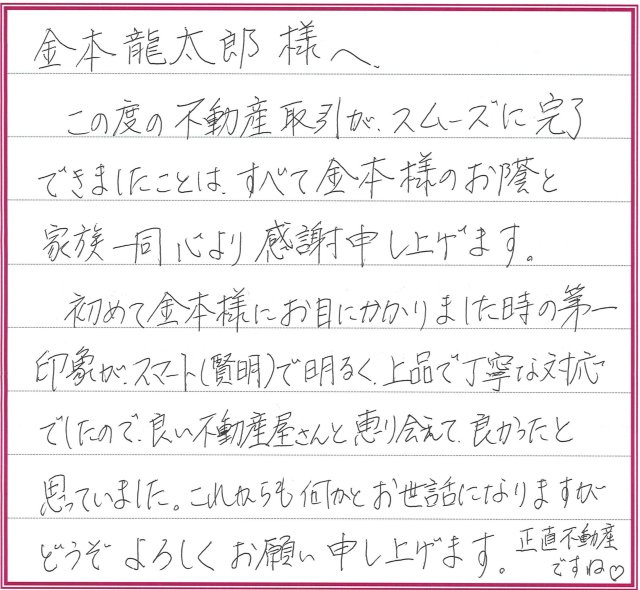 金本龍太郎様へ、
この度の不動産取引が、スムーズに完了
できましたことは、すべて金本様のお蔭と
家族一同心より感謝申し上げます。
初めて金本様にお目にかかりました時の第一
印象が、スマート(賢明)で明るく、上品で丁寧な対応
でしたので、良い不動産屋さんと恵り会えて、良かったと
思っていました。これからも何かとお世話になりますが
どうぞよろしくお願い申し上げます。
正直不動産
ですね♡